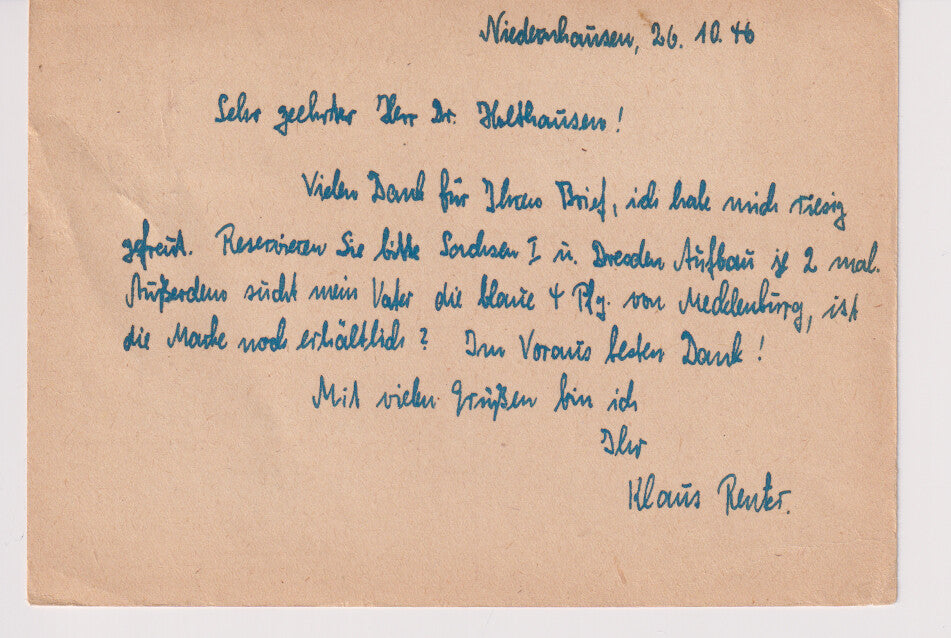 Niedernhausen, 26. 10. 46
Sehr geehrter Herr Dr. Holthausen!
Vielen Dank für Ihren Brief, ich habe mich riesig
gefreut. Reservieren Sie bitte Sachsen I u. Dresden Aufbau je 2 mal.
Außerdem sucht mein Vater die blaue 4 Pfg. von Mecklenburg, ist
die Marke noch erhältlich? Im Voraus besten Dank!
Mit vielen Grüßen bin ich
Ihr
Klaus